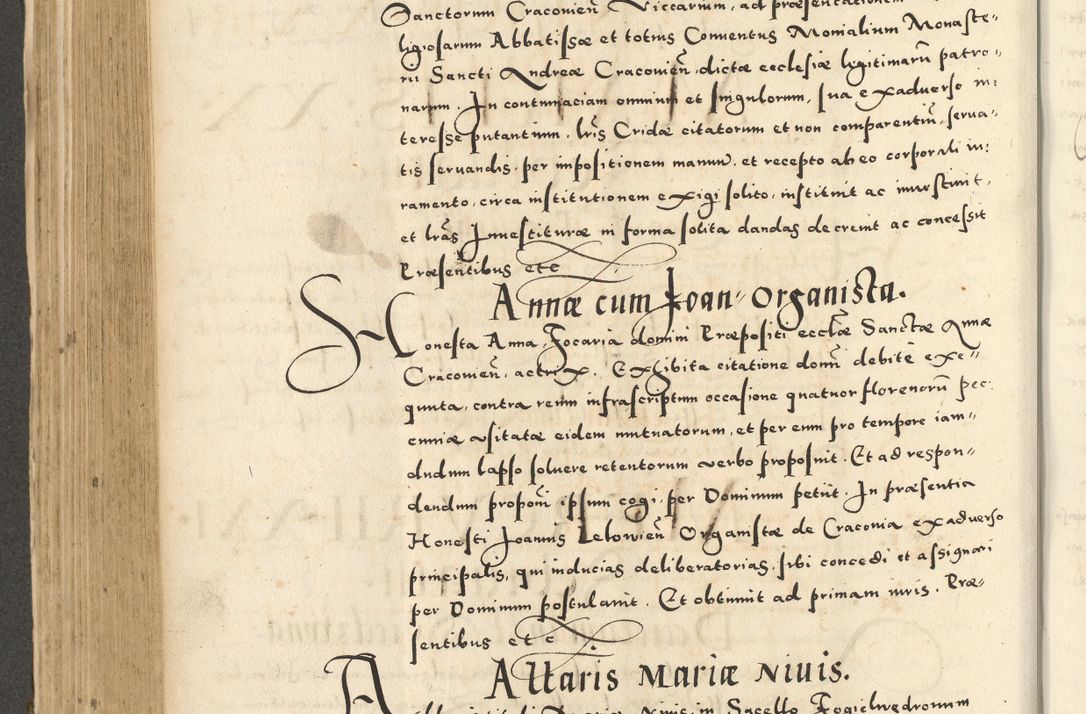 Sanctorum Cracovień Viccarium, ad præsentationem
ligiosarum Abbatissæ et totius Conventus Monialium Monaste-
rii Sancti Andreæ Cracovień, dictæ ecclesiæ legitimarū patro-
narum. In contumaciam omnium et singulorum, sua exadverso in-
teresse putantium, lrīs Cridæ citatorum et non comparentiū, serva-
tis servandis, per impositionem manuum, et recepto ab eo corporali iu-
ramento, circa institutionem exigi solito, instituit ac investivit,
et lrās Investituræ in forma solita dandas decrevit ac concessit
Præsentibus etc
Annæ cum Joan Organista.
Honesta Anna, Focaria domini Præpositi eccłæ Sanctæ Annæ
Cracovień, actrix. Exhibita citatione domī debite exe-
quuta, contra reum infrascriptum occasione quatuor florenorū pec-
cuniæ usitatæ eidem mutuatorum, et per eum pro tempore iam-
dudum lapso solvere retentorum verbo proposuit. Et ad respon-
dendum proponī ipsum cogi, per Dominum petiit. In præsentia
Honesti Joannis Lelowień Organistæ de Cracovia exadverso
principalis, qui inducias deliberatorias, sibi concedi et assignari
per Dominum postulavit. Et obtinuit ad primam iuris. Præ-
sentibus etc
Altaris Mariæ Nivis.
Mariæ Nivis, in Sacello Fogielwedronum